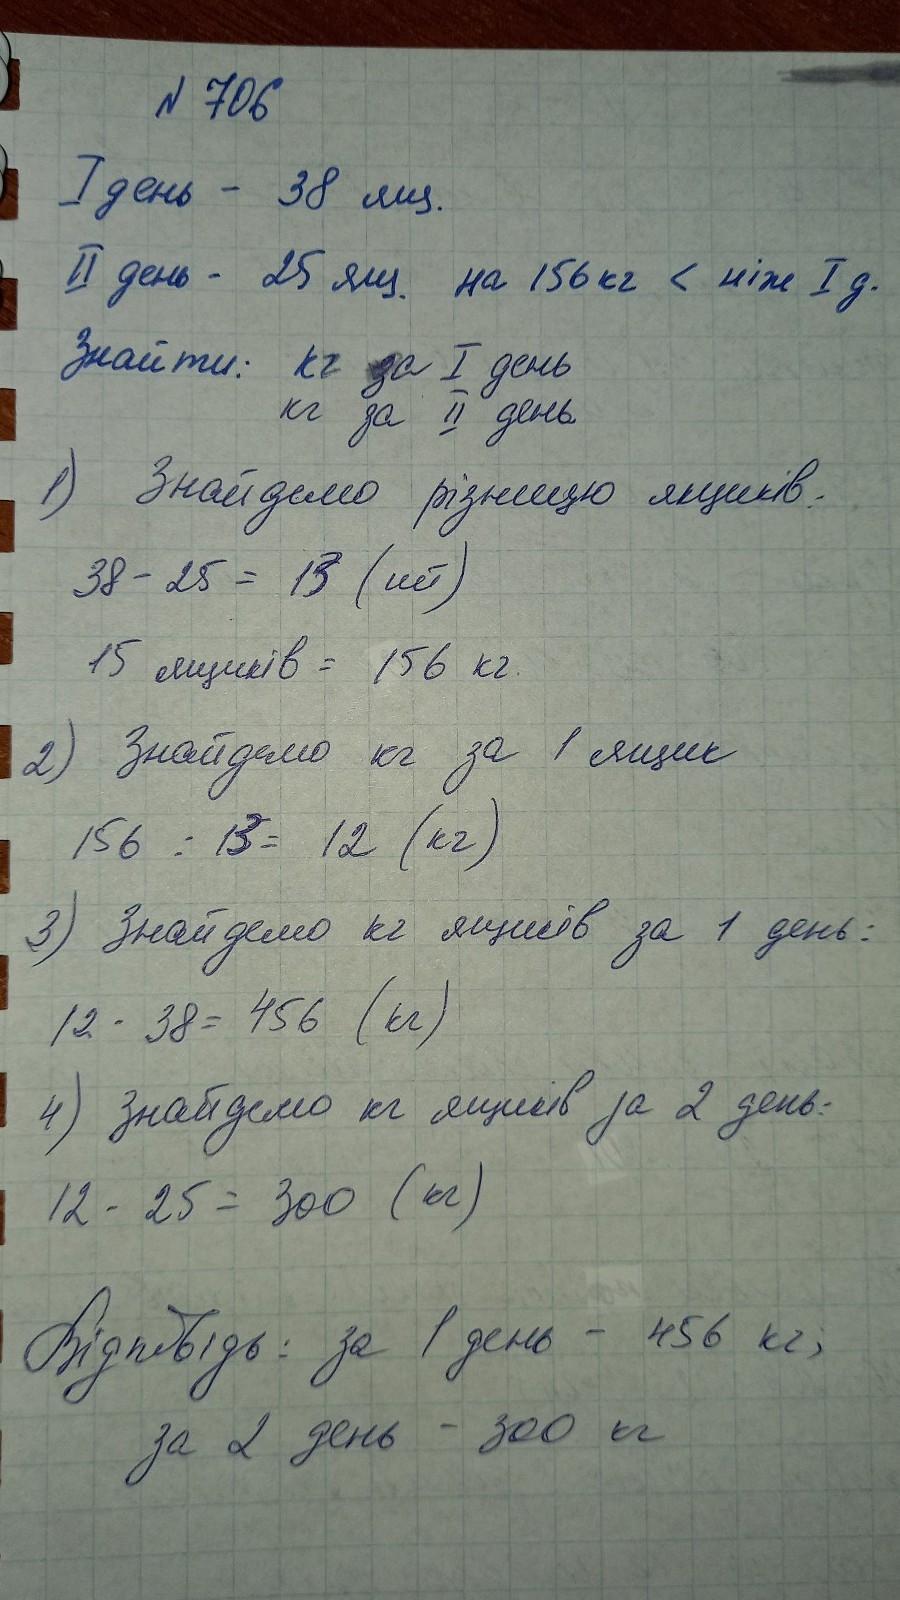 № 706
I день - 38 ящ.
II день - 25 ящ. на 156 кг < ніж I д.
Знайти: кг за I день
кг за II день
1) Знайдемо різницю ящиків:
38 - 25 = 13 (шт)
15 ящиків = 156 кг.
2) Знайдемо кг за 1 ящик
156 : 13 = 12 (кг)
3) Знайдемо кг ящиків за 1 день:
12 · 38 = 456 (кг)
4) Знайдемо кг ящиків за 2 день:
12 · 25 = 300 (кг)
Відповідь: за 1 день - 456 кг;
за 2 день - 300 кг